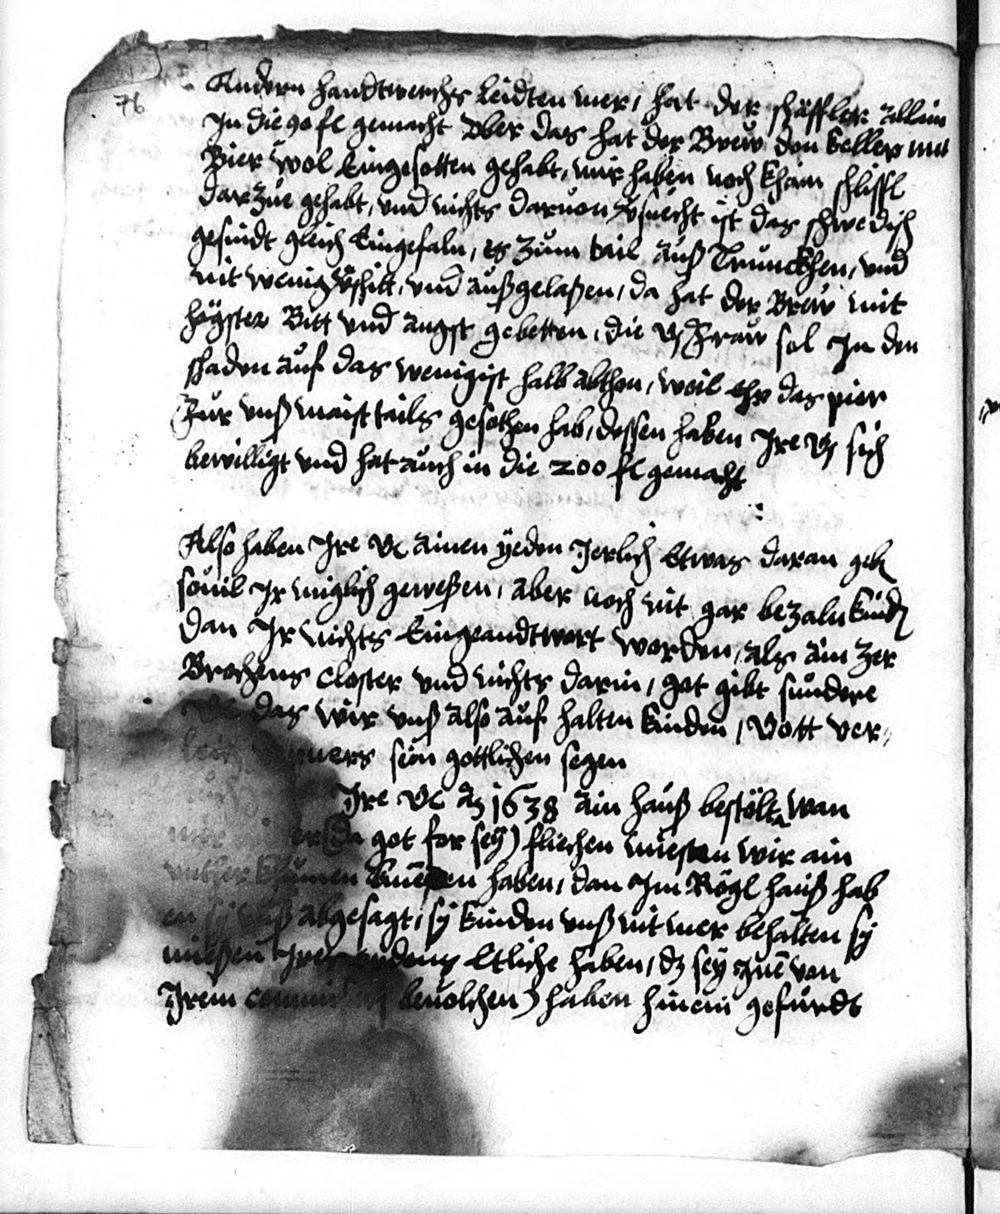 76
Andern handtwerchs Leidten mer, hat der schäffler allain
In die 90 fl gemacht Aber das hat der Breüw den keller mit
Bier wol Eingesotten gehabt, mir haben noch khain schliffl
darzue gehabt, vnd nichts daruon gesuecht ist das schwedisch
gesindt gleich Eingefaln, es zum tail auß Trunckhen, vnd
mit wenig verschitt, vnd außgelaßen, da hat der Breüw mit
högster Bitt vnd angst gebetten, die Frauw sol In den
schaden auf das wenigist halb abthon, weil Ehr das pier
Für vnß maist tails gesothen hab, dessen haben Ire sich
bewilligt vnd hat auch in die 200 fl gemacht
Also haben Ire ainen yeden Jerlich Etwas daran geb
souil Ir miglich geweßen, aber noch nit gar bezaln kind
dan Ir nichts Eingeandtwort worden, als ain zer
Brochens Closter vnd nichts darin, got gibt sundere
das wir vnß also auf halten kinden, Gott ver
sein gottlichen segen
Ire 1638 ain hauß bestölt wan
mir got for sey) fliechen miesten wir ain
vnther khumen haben, dan Im Rögl hauß hab
en sy vnß abgesagt, sy kinden vnß nit mer behalten sy
mießen Etliche haben, dz sey von
Irem beuolchen) haben hinein gefürdt